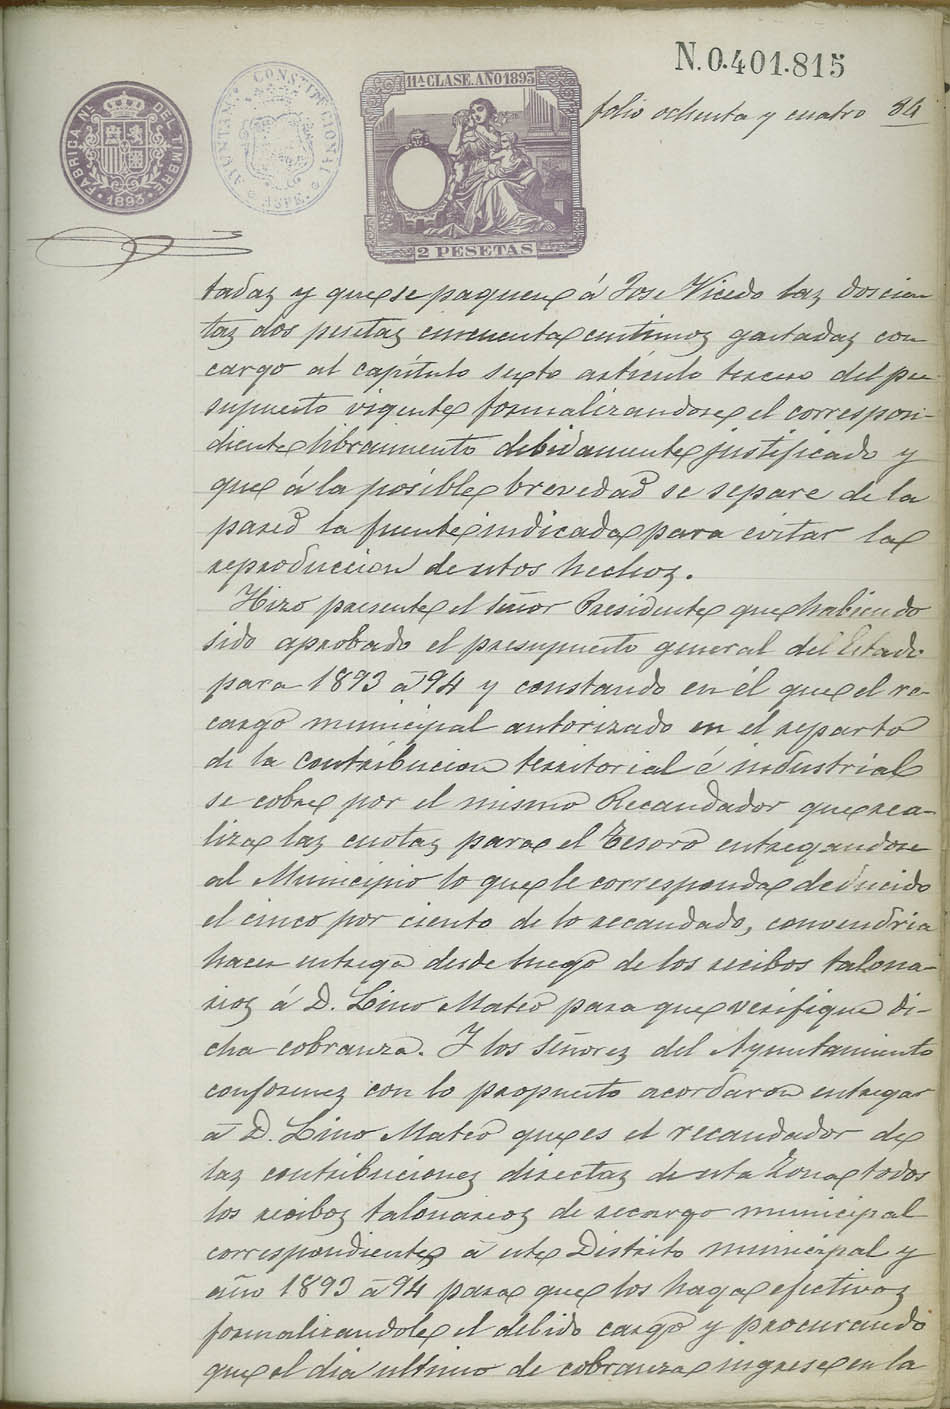 N.0.401.815
11ª CLASE. AÑO 1893
2 PESETAS
FABRICA NL. DEL TIMBRE
1893
AYUNTAMTO CONSTITUCIONAL
ASPE
folio ochenta y cuatro 84
tadas y que se paguen á Jose Vicedo las doscien
tas dos pesetas cincuenta centimos gastadas con
cargo al capítulo sesto artículo tercero del pre
supuesto vigente formalizandose el correspon-
diente libramiento debidamente justificado y
que á la posible brevedad se separe de la
pared la fuente indicada para evitar la
reproduccion de estos hechos.
Hizo presente el señor Presidente que habiendo
sido aprobado el presupuesto general del Estado
para 1893 á 94 y constando en él que el re-
cargo municipal autorizado en el reparto
de la contribucion territorial é industrial
se cobre por el mismo Recaudador que rea-
liza las cuotas para el Tesoro entregandose
al Municipio lo que le corresponda deducido
el cinco por ciento de lo recaudado, convendria
hacer entrega desde luego de los recibos talona-
rios á D. Lino Mateo para que verifique di-
cha cobranza. Y los señores del Ayuntamiento
conformes con lo propuesto acordaron entregar
á D. Lino Mateo que es el recaudador de
las contribuciones directas de esta Zona todos
los recibos talonarios de recargo municipal
correspondientes á este Distrito municipal y
año 1893 á 94 para que los haga efectivos
formalizandole el debido cargo y procurando
que el dia ultimo de cobranza ingrese en la